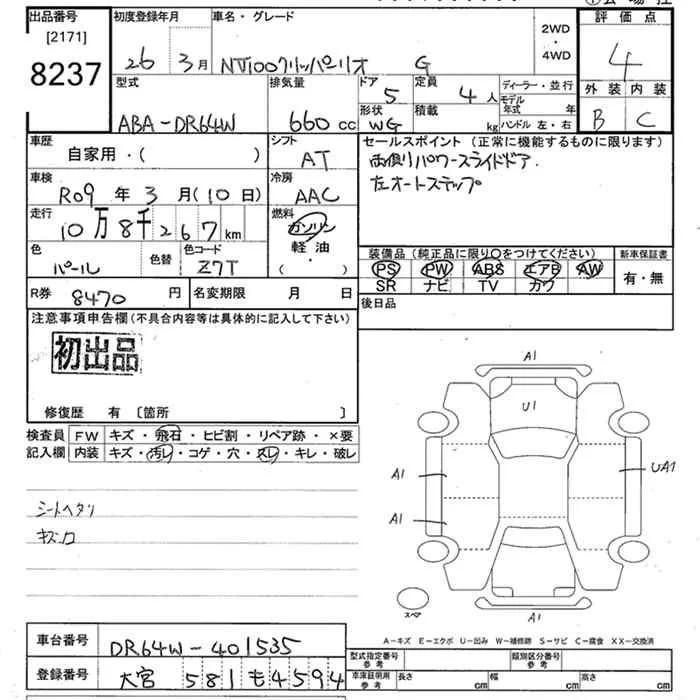 出品番号 [2171] 8237
初度登録年月 26 3月
車名・グレード NT100クリッパーリオ G
2WD・4WD
評価点 4
外装 B 内装 C
型式 ABA-DR64W
排気量 660cc
ドア 5
定員 4人
形状 WG
積載 kg
ディーラー・並行
モデル年式 年
ハンドル 左・右
車歴 自家用・( )
シフト AT
セールスポイント (正常に機能するものに限ります)
両側パワースライドドア.
左オートステップ
車検 R09年3月(10日)
冷房 AAC
走行 10万8千267km
燃料 ガソリン 軽油 ( )
色 パール
色替
色コード Z7T
装備品 (純正品に限り〇をつけてください)
PS PW ABS エアB AW
SR ナビ TV カワ
新車保証書 有・無
R券 8470円
名変期限 月 日
後日品
注意事項申告欄(不具合内容等は具体的に記入して下さい)
初出品
修復歴 有 〔箇所 〕
検査員記入欄
FW キズ・飛石・ヒビ割・リペア跡・×要
内装 キズ・汚レ・コゲ・穴・スレ・キレ・破レ
シートヘタリ
キズ
A1
U1
A1
UA1
A1
A1
スペア
A-キズ E-エクボ U-凹み W-補修跡 S-サビ C-腐食 XX-交換済
車台番号 DR64W-401535
登録番号 大宮 581 も 4594
型式指定番号 参考
類別区分番号 参考
車庫証明用 参考 長さ cm 幅 cm 高さ cm